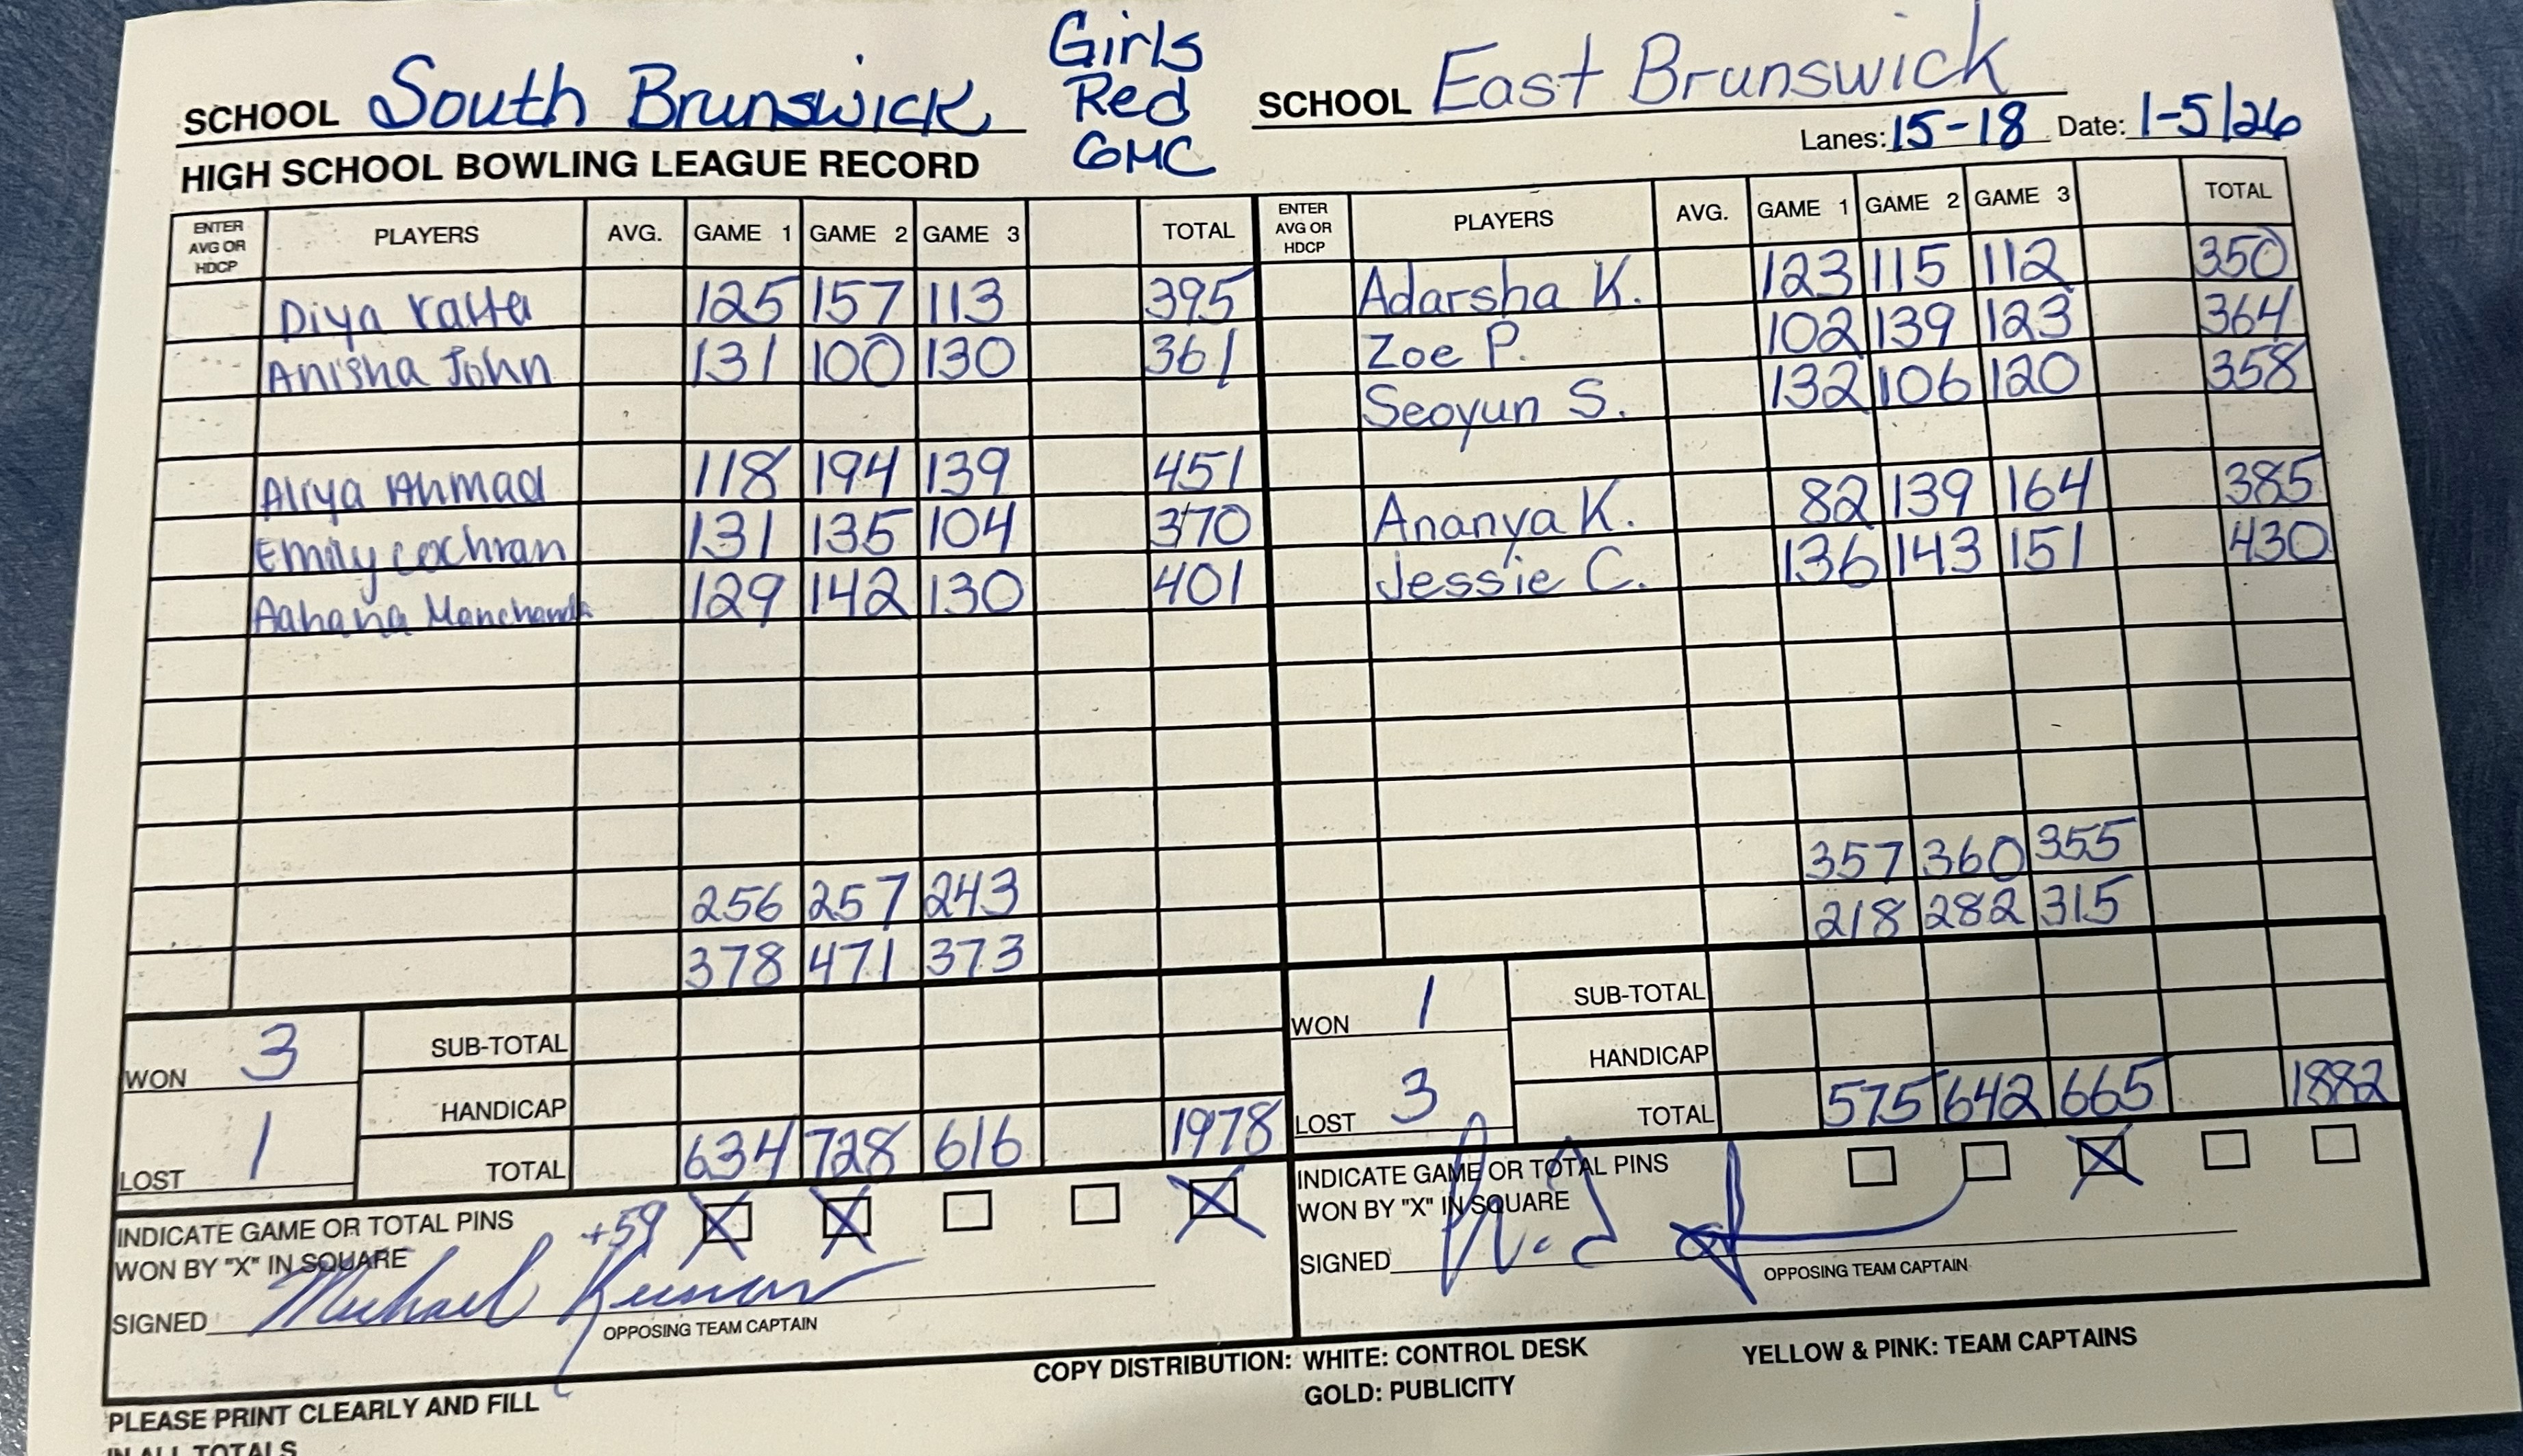 Girls
SCHOOL South Brunswick Red SCHOOL East Brunswick
GMC Lanes: 15-18 Date: 1-5/26
HIGH SCHOOL BOWLING LEAGUE RECORD
ENTER AVG OR HDCP PLAYERS AVG. GAME 1 GAME 2 GAME 3 TOTAL ENTER AVG OR HDCP PLAYERS AVG. GAME 1 GAME 2 GAME 3 TOTAL
Diya 125 157 113 395 Adarsha K. 123 115 112 350
Anisha John 131 100 130 361 Zoe P. 102 139 123 364
Seoyun S. 132 106 120 358
Aliya Ahmad 118 194 139 451
Emily Cochran 131 135 104 370 Ananya K. 82 139 164 385
Aahana Manchanda 129 142 130 401 Jessie C. 136 143 151 430
256 257 243 357 360 355
378 471 373 218 282 315
WON 3 SUB-TOTAL WON 1 SUB-TOTAL
HANDICAP HANDICAP
LOST 1 TOTAL 634 728 616 1978 LOST 3 TOTAL 575 642 665 1882
INDICATE GAME OR TOTAL PINS +59 X X X INDICATE GAME OR TOTAL PINS X
WON BY "X" IN SQUARE WON BY "X" IN SQUARE
SIGNED Michael SIGNED
OPPOSING TEAM CAPTAIN OPPOSING TEAM CAPTAIN
COPY DISTRIBUTION: WHITE: CONTROL DESK YELLOW & PINK: TEAM CAPTAINS
GOLD: PUBLICITY
PLEASE PRINT CLEARLY AND FILL
IN ALL TOTALS